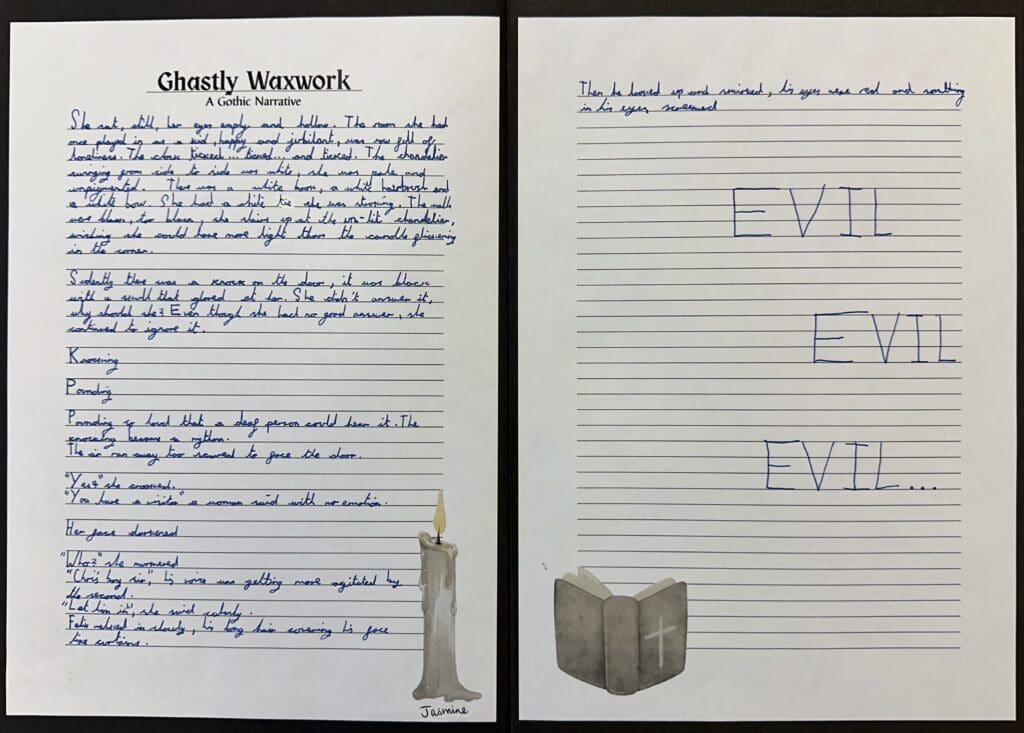 Ghastly Waxwork
A Gothic Narrative
She sat, still, her eyes empty and hollow. The room she had
once played in as a kid, happy and jubilant, was now full of
loneliness. The clock ticked... ticked... and ticked. The chandelier
swinging from side to side was white, she was pale and
unpigmented. There was a white book, a white hairbrush and
a white bow. She had a white tie she was . The walls
were black, too black, she up at the un-lit chandelier,
wishing she could have more light than the candle flickering
in the corner.
there was a knock on the door, it was black
with a skull that glared at her. She didn't answer it,
why should she? Even though she had no good answer, she
continued to ignore it.
Knocking
Pounding
Pounding so loud that a deaf person could hear it. The
knocking became a .
The air ran away too scared to face the door.
"Yes?" she croaked.
"You have a visitor" a woman said with no emotion.
Her face darkened
"Who?" she
"Chris boy sir", his voice was getting more agitated by
the second.
"Let him in", she said calmly.
walked in slowly, his long hair covering his face
like curtains.
Jasmine
Then he looked up and smirked, his eyes were red and something
in his eyes screamed
EVIL
EVIL
EVIL...